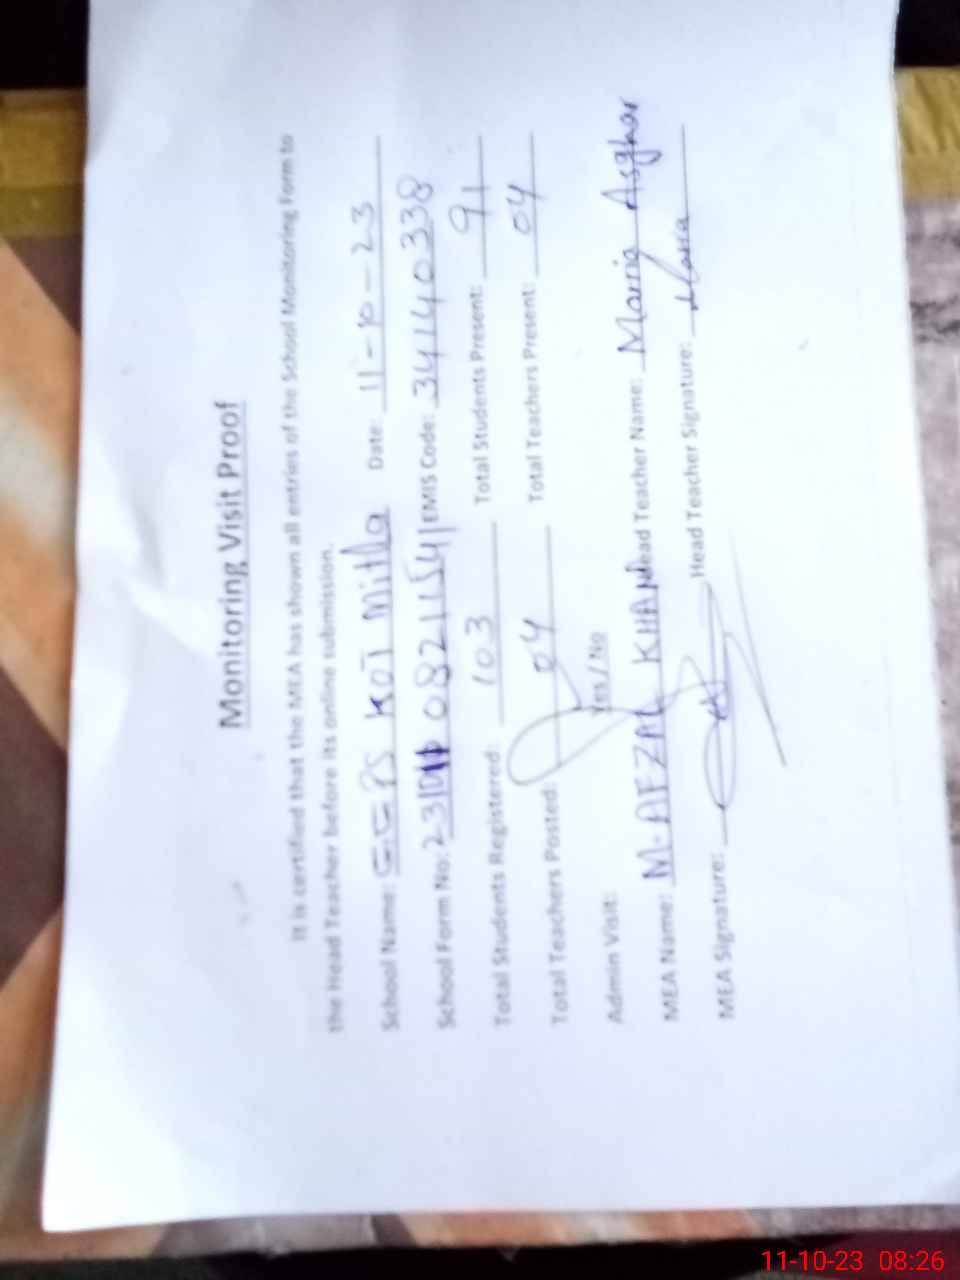 Monitoring Visit Proof
It is certified that the MEA has shown all entries of the School Monitoring Form to
the Head Teacher before its online submission.
School Name: GGPS KOT Mitla Date: 11-10-23
School Form No: 08211541 EMIS Code: 34140338
Total Students Registered: 103 Total Students Present: 91
Total Teachers Posted: 04 Total Teachers Present: 04
Admin Visit: Yes / No
MEA Name: M. AFZAL KHAN Head Teacher Name: Maria Asghar
MEA Signature: Head Teacher Signature: Maria
11-10-23 08:26